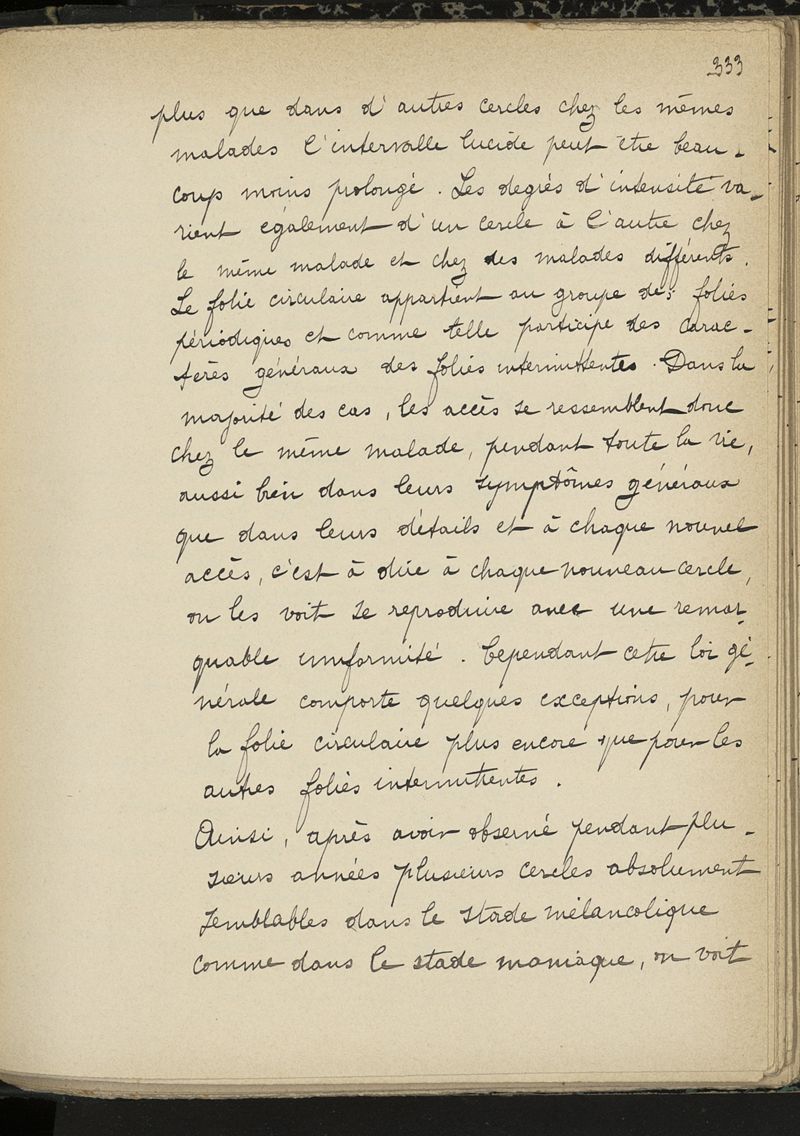 333
plus que dans d'autres cercles chez les mêmes
malades l'intervalle lucide peut être beau-
coup moins prolongé. Les degrés d'intensité va-
rient également d'un cercle à l'autre chez
le même malade et chez des malades différents.
La folie circulaire appartient au groupe des folies
périodiques et comme telle participe des carac-
tères généraux des folies intermittentes. Dans la
majorité des cas, les accès se ressemblent donc
chez le même malade, pendant toute la vie,
aussi bien dans leurs symptômes généraux
que dans leurs détails et à chaque nouvel
accès, c'est à dire à chaque nouveau cercle,
on les voit se reproduire avec une remar-
quable uniformité. Cependant cette loi gé-
nérale comporte quelques exceptions, pour
la folie circulaire plus encore que pour les
autres folies intermittentes.
Ainsi, après avoir observé pendant plu-
sieurs années plusieurs cercles absolument
semblables dans le stade mélancolique
comme dans le stade maniaque, on voit